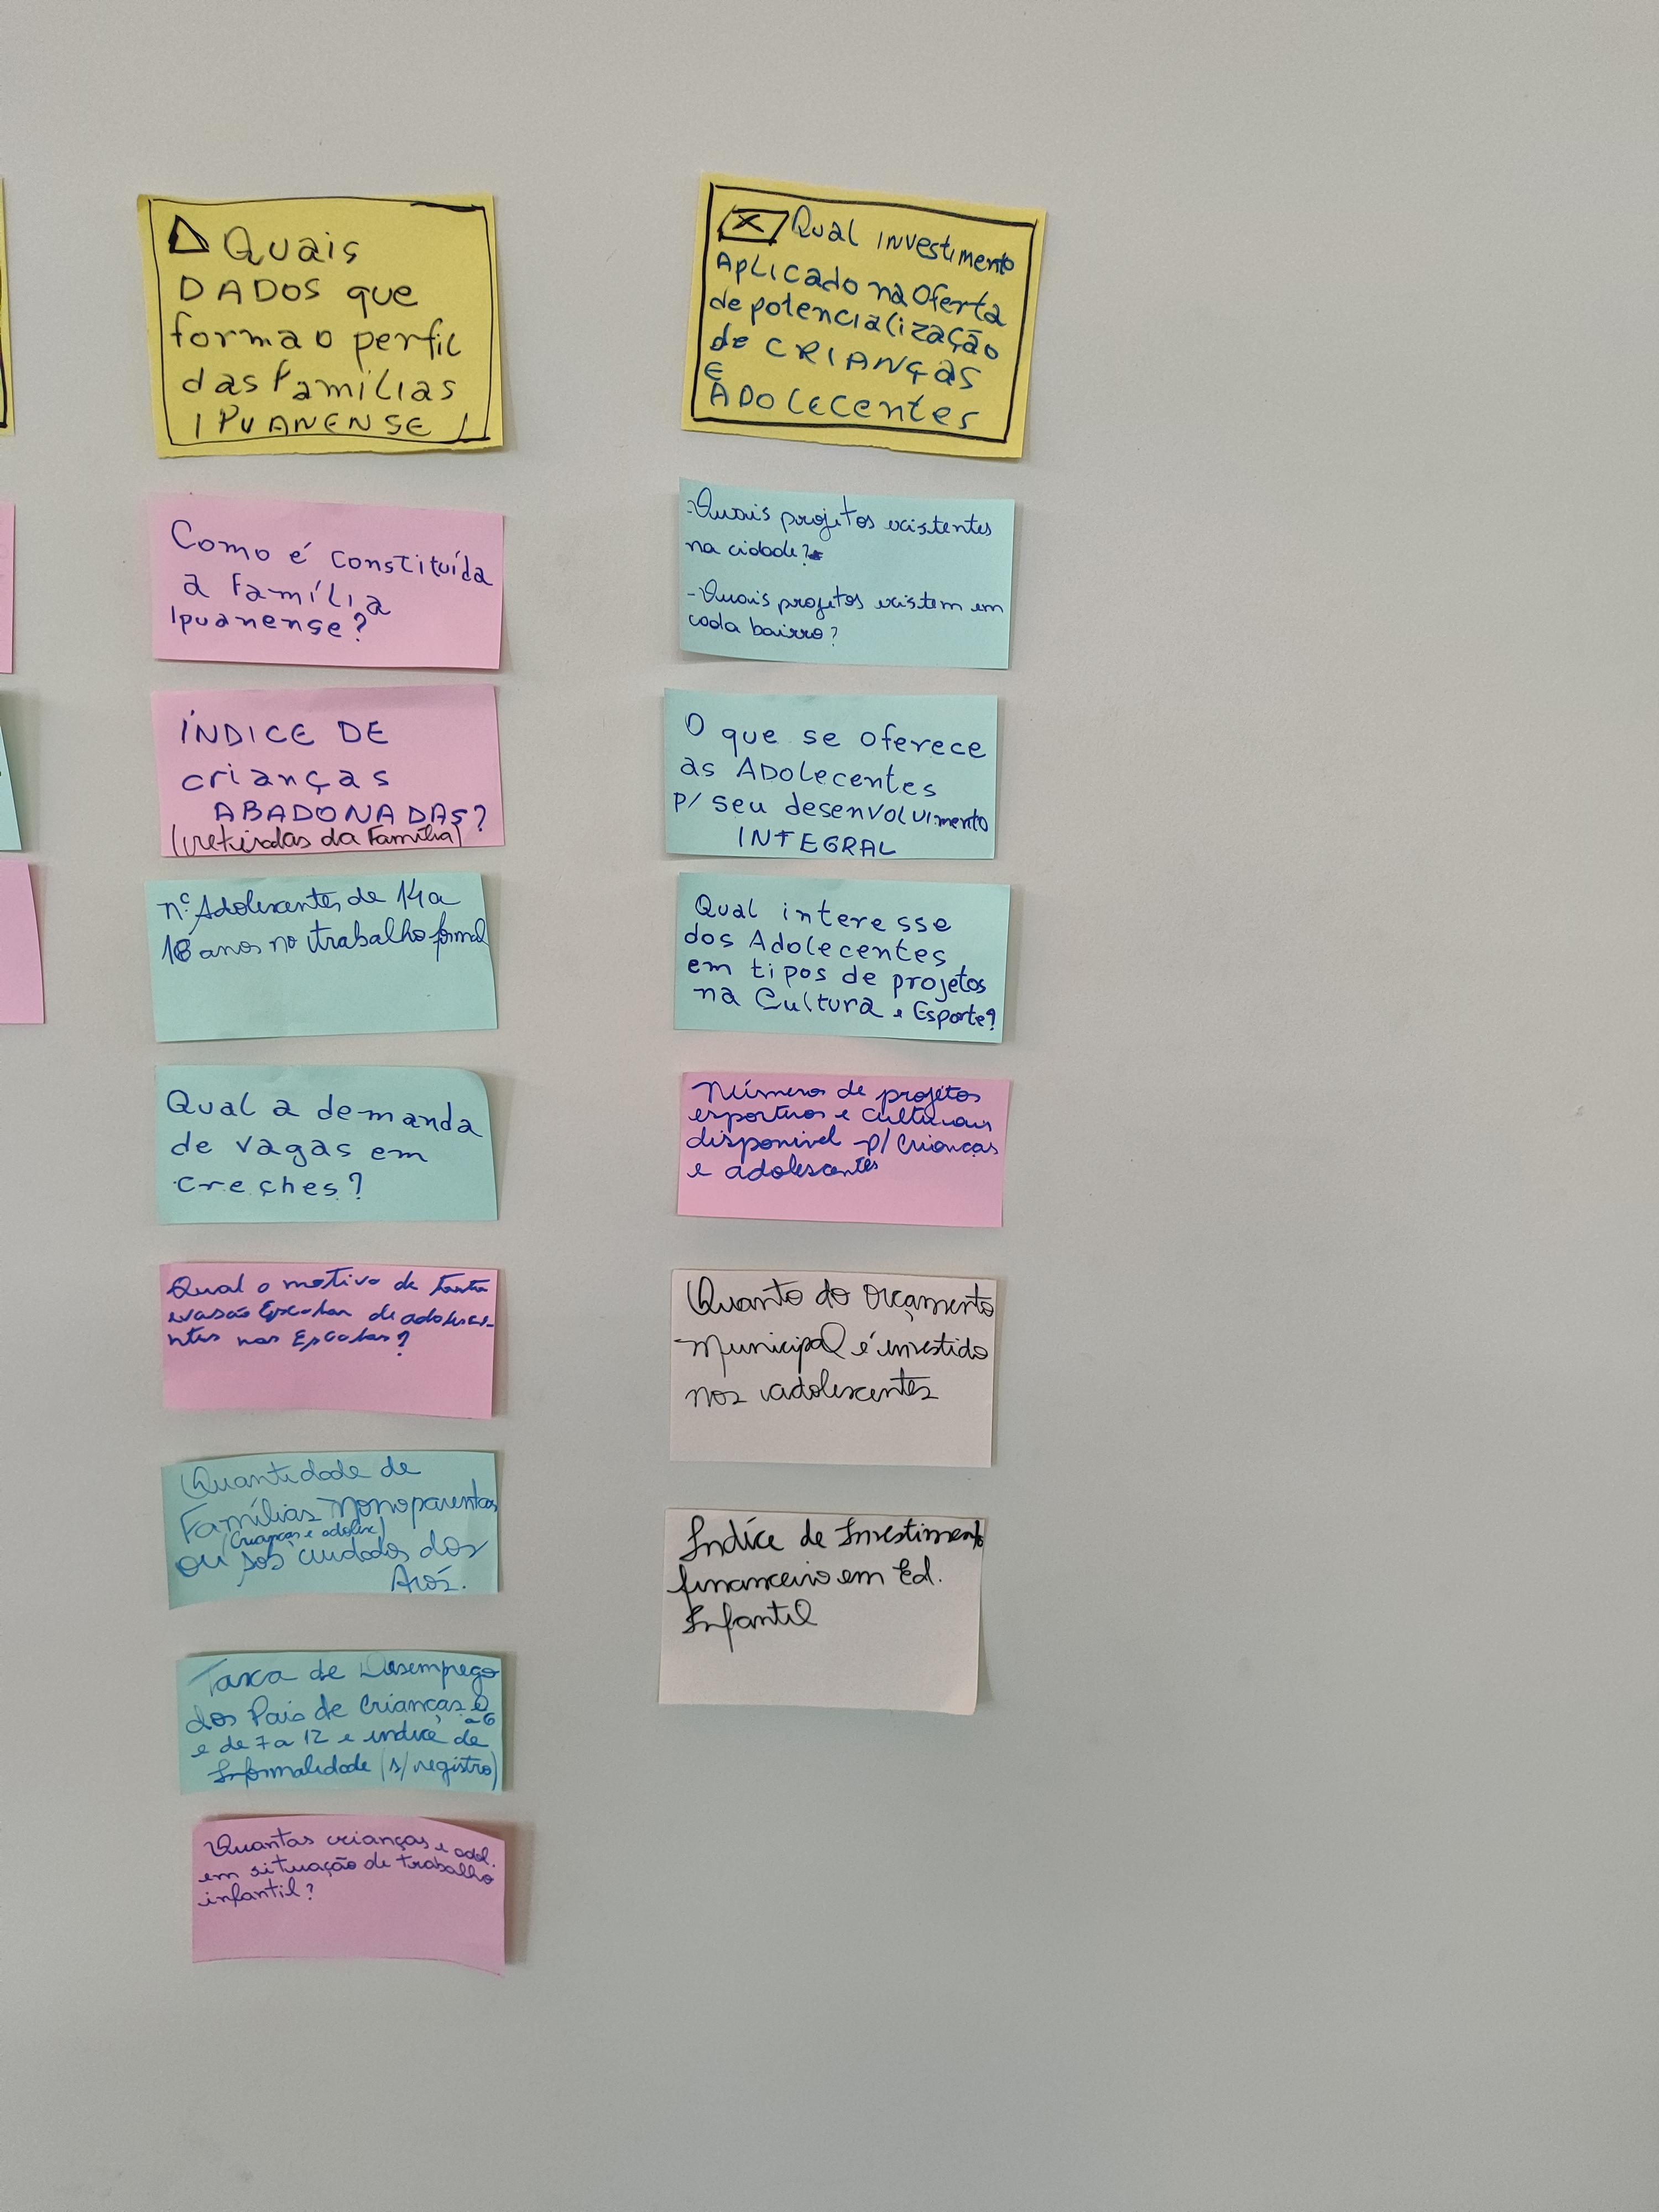 Quais
DADOS que
forma o perfil
das Famílias
IPUANENSE!
Como é constituída
a Família
Ipuanense?
ÍNDICE DE
crianças
ABADONADAS?
(retiradas da Família)
nº Adolescentes de 14 a
18 anos no trabalho formal
Qual a demanda
de vagas em
creches?
Qual o motivo de tanta
evasão Escolar de adolesce-
ntes nas Escolas?
Quantidade de
Famílias Monoparentais
(Crianças e adolesc)
ou sos cuidados dos
Avós.
Taxa de Desemprego
dos Pais de Crianças 0
a 6
e de 7 a 12 e indice de
Informalidade (s/registro)
Quantas crianças e adol.
em situação de trabalho
infantil?
X Qual investimento
Aplicado na Oferta
de potencialização
de CRIANÇAS
E
ADOLECENTES
-Quais projetos existentes
na cidade?
-Quais projetos existem em
cada bairro?
O que se oferece
as ADolecentes
p/ seu desenvolvimento
INTEGRAL
Qual interesse
dos Adolecentes
em tipos de projetos
na Cultura e Esporte?
Números de projetos
esportivos e culturais
disponivel p/ Crianças
e adolescentes
Quanto do Orçamento
Municipal é investido
nos adolescentes
Indíce de Investimento
financeiro em Ed.
Infantil